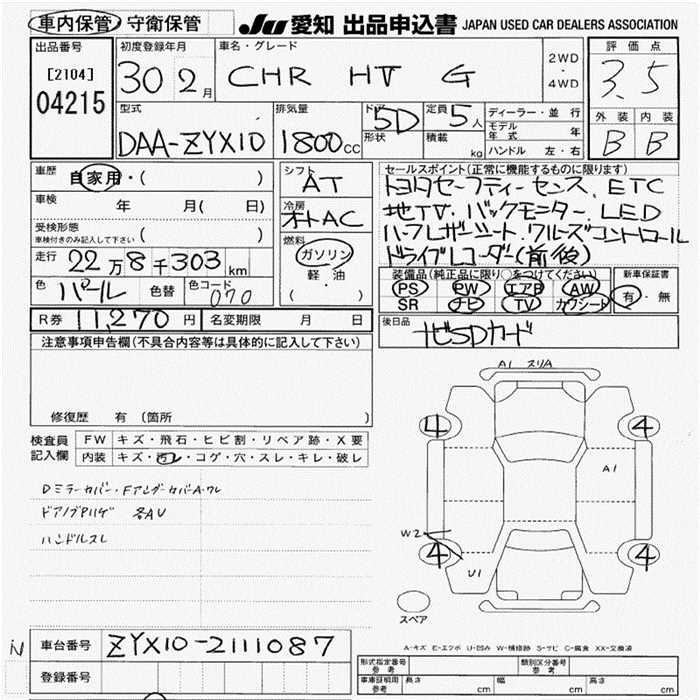 車内保管・守衛保管 JU 愛知 出品申込書 JAPAN USED CAR DEALERS ASSOCIATION
出品番号 [2104] 04215
初度登録年月 30 2月
車名・グレード CHR HV G
2WD・4WD
評価点 3.5
外装 B 内装 B
型式 DAA-ZYX10
排気量 1800cc
ドア 5D 形状
定員 5人 積載 kg
ディーラー・並行
モデル年式 年
ハンドル 左・右
車歴 自家用・( )
車検 年 月( 日)
受検形態 車検付きのみ記入して下さい ( )
走行 22万8千303km
色 パール 色替 色コード 070
シフト AT
冷房 オートAC
燃料 ガソリン・軽・油 ( )
セールスポイント(正常に機能するものに限ります)
トヨタセーフティーセンス、ETC
地TV、バックモニター、LED
ハーフレザーシート、クルーズコントロール
ドライブレコーダー(前後)
装備品(純正品に限り○をつけてください)
PS PW エアB AW
SR ナビ TV カワシート
新車保証書 有・無
R券 11,270円 名変期限 月 日
後日品 ナビSDカード
注意事項申告欄(不具合内容等は具体的に記入して下さい)
修復歴 有 (箇所 )
検査員記入欄 FW キズ・飛石・ヒビ割・リペア跡・X要
内装 キズ・汚レ・コゲ・穴・スレ・キレ・破レ
Dミラーカバー・Fアンダーカバー
ハンドルスレ
A1 スリA
4 4
A1
W2
4 4
U1
スペア
A-キズ E-エクボ U-凹み W-補修跡 S-サビ C-腐食 XX-交換済
車台番号 ZYX10-2111087
登録番号
形式指定番号 参考 類別区分番号 参考
車庫証明用 参考 長さ cm 幅 cm 高さ cm